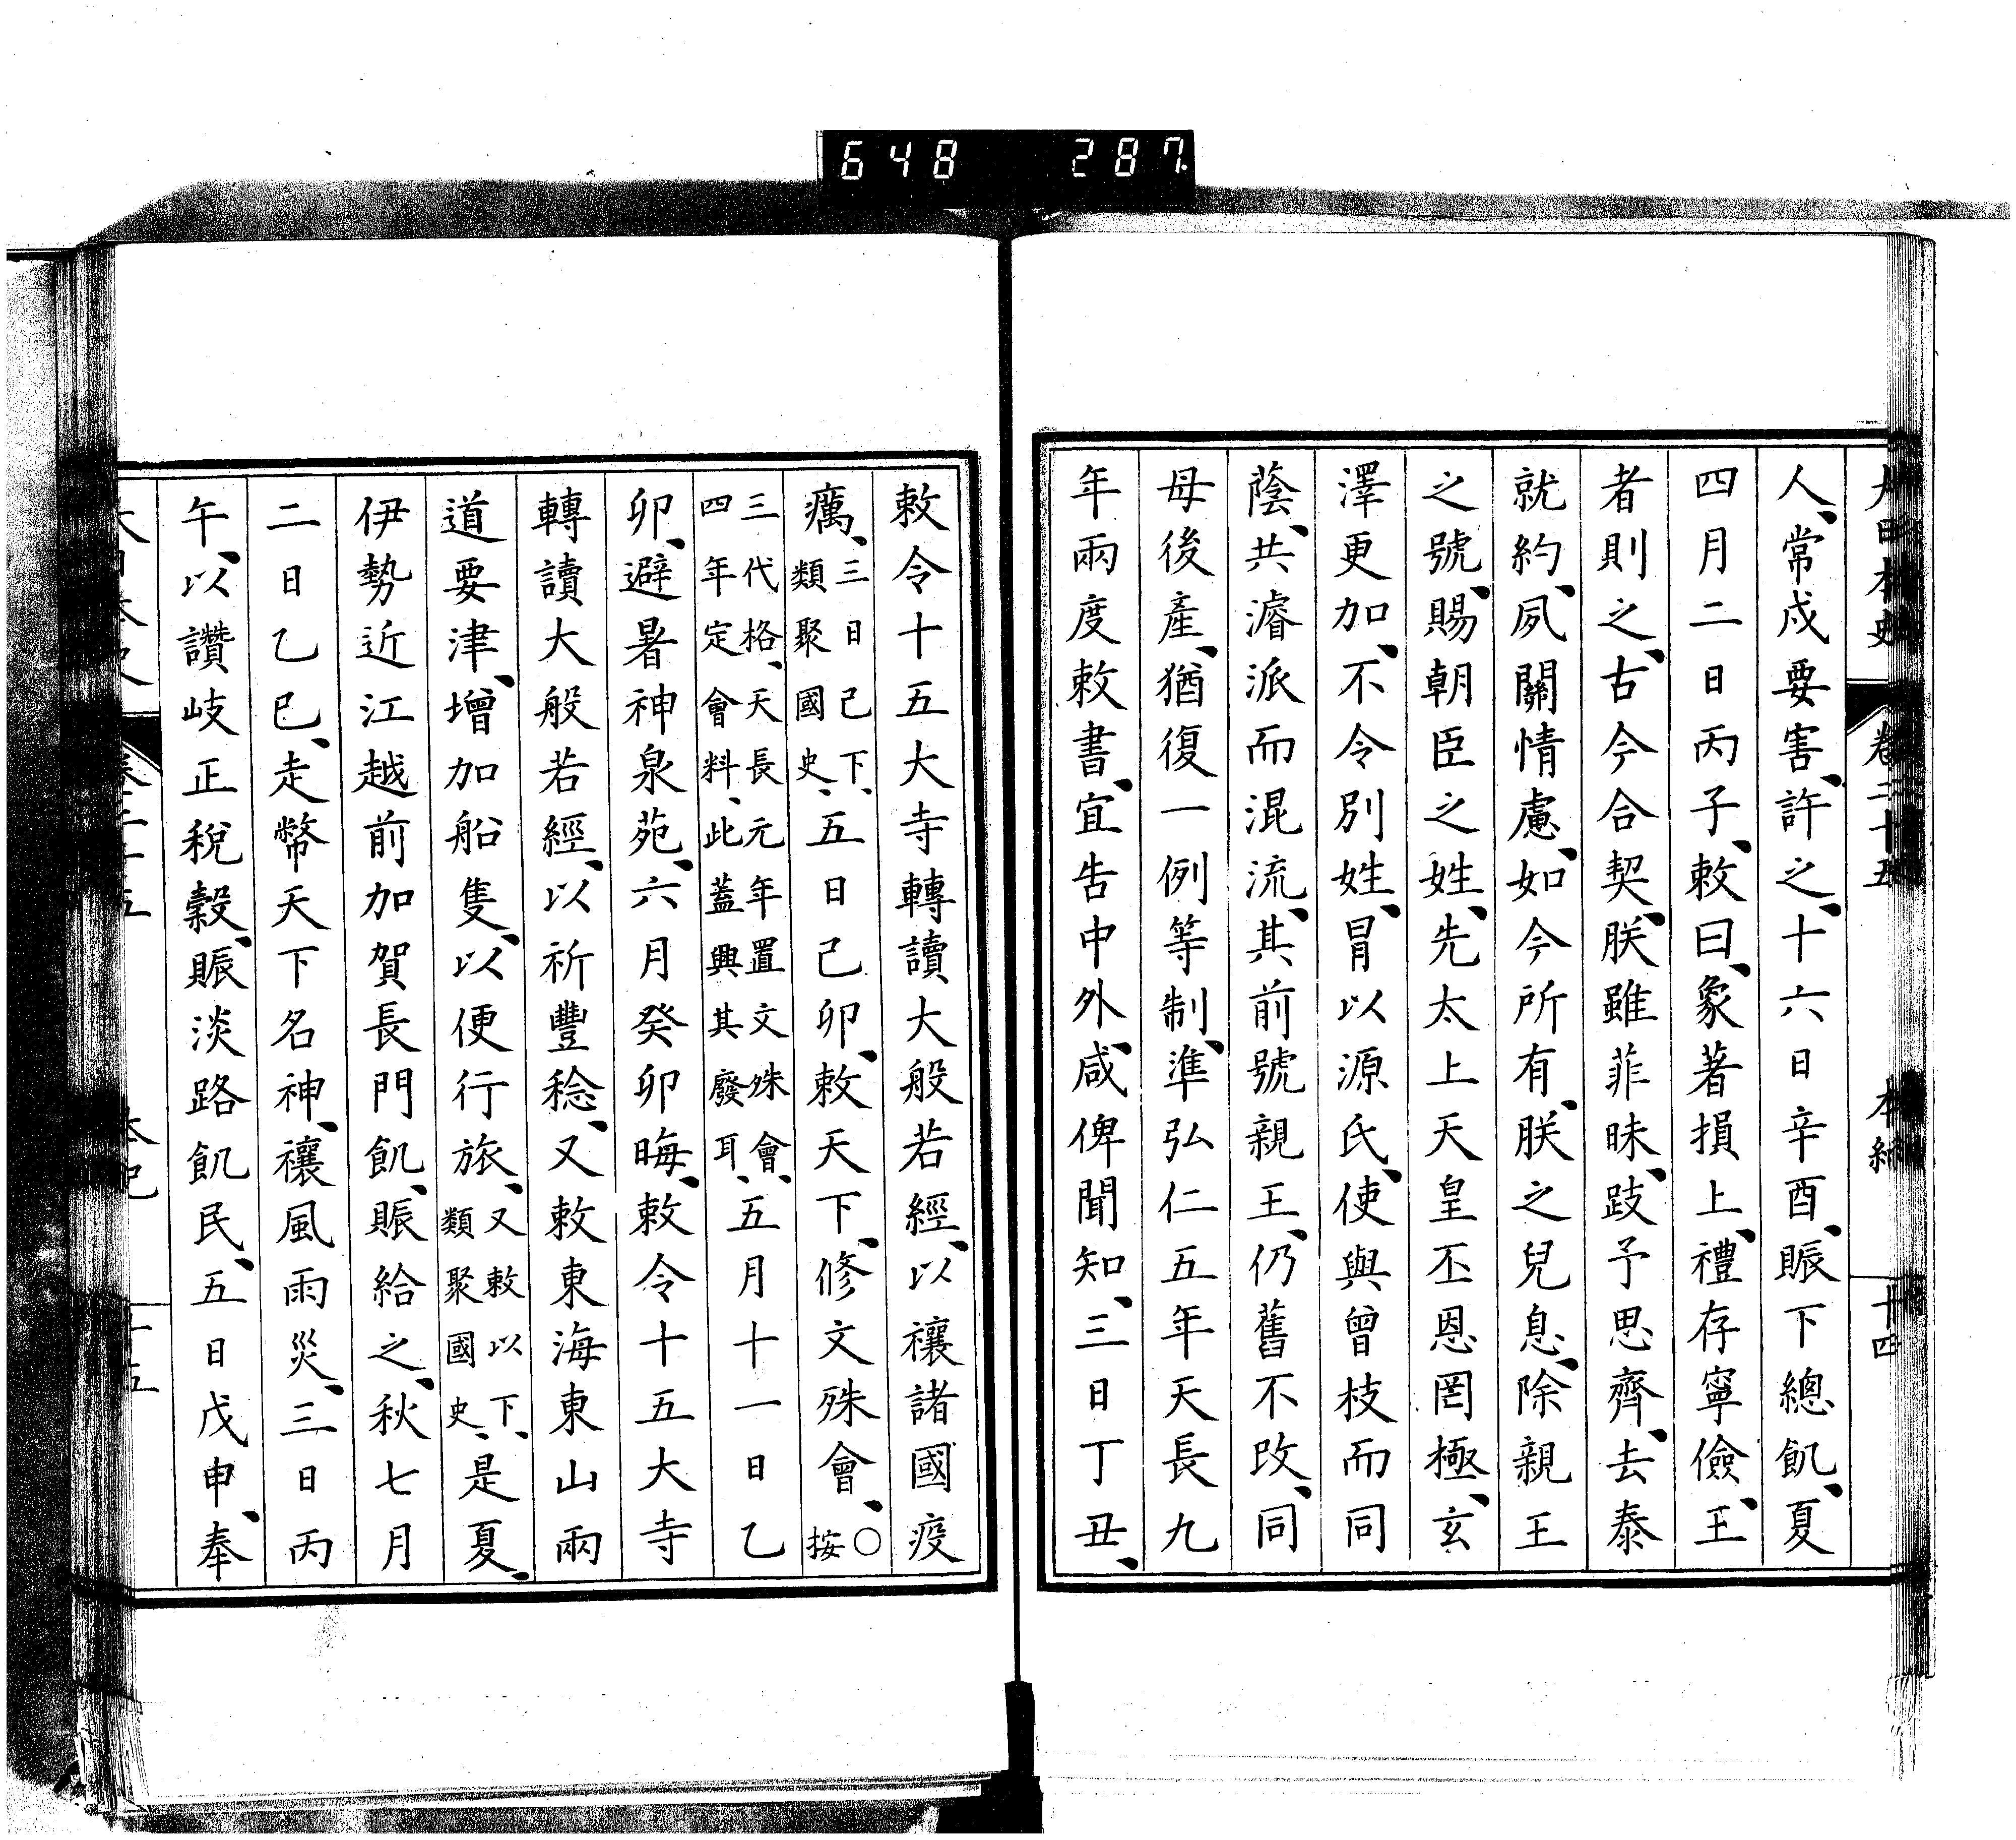 648 287
大日本史 卷二十五 本紀 十四
人、常戍要害、許之、十六日辛酉、賑下總飢、夏
四月二日丙子、敕曰、象著損上、禮存寧儉、王
者則之、古今合契、朕雖菲昧、跂予思齊、去泰
就約、夙關情慮、如今所有、朕之兒息、除親王
之號、賜朝臣之姓、先太上天皇丕恩罔極、玄
澤更加、不令別姓、冒以源氏、使與曾枝而同
蔭、共濬派而混流、其前號親王、仍舊不改、同
母後產、猶復一例等制、準弘仁五年天長九
年兩度敕書、宜告中外、咸俾聞知、三日丁丑、
敕令十五大寺轉讀大般若經、以禳諸國疫
癘、三日己下、類聚國史、五日己卯、敕天下、修文殊會、○按
三代格、天長元年置文殊會、四年定會料、此蓋興其廢耳、五月十一日乙
卯、避暑神泉苑、六月癸卯晦、敕令十五大寺
轉讀大般若經、以祈豐稔、又敕東海東山兩
道要津、增加船隻、以便行旅、又敕以下、類聚國史、是夏、
伊勢近江越前加賀長門飢、賑給之、秋七月
二日乙巳、走幣天下名神、禳風雨災、三日丙
午、以讚岐正稅穀、賑淡路飢民、五日戊申、奉